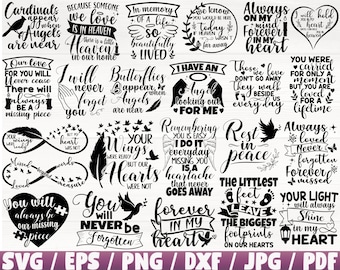 Cardinals
appear when
Angels
are near
BECAUSE SOMEONE
we love
IS IN HEAVEN
there is a little
Heaven
in our home
In memory
OF A LIFE
so
beautifully
LIVED
always ON
MY MIND
Forever
IN MY
heart
held
heart
Our Love
FOR YOU WILL
Ever cease
There will
ALWAYS BE
A missing piece
I will
never
forget
you
Butterflies
appear when
Angels
are near
I HAVE AN
Angel
looking out
FOR ME
Those we love
DON'T GO AWAY
They walk
BESIDE us
every day
YOU WERE
carried
FOR ONLY A
MOMENT
but you are
loved FOR A
lifetime
Your
Wings
WERE READY
BUT OUR
Hearts
WERE NOT
REMEMBERING
YOU IS EASY
I DO IT
everyday
MISSING YOU
IS A
HEARTACHE
THAT NEVER
GOES AWAY
Rest in
peace
Always
loved
never
forgotten
Forever
missed
You will
always be
our missing
piece
You
will
NEVER be
Forgotten
forever
IN MY
heart
THE LITTLEST
feet
LEAVE THE
BIGGEST
footprints
ON OUR HEARTS
YOUR LIGHT
will always
Shine
in my
heart
SVG / EPS / PNG / DXF / JPG / PDF